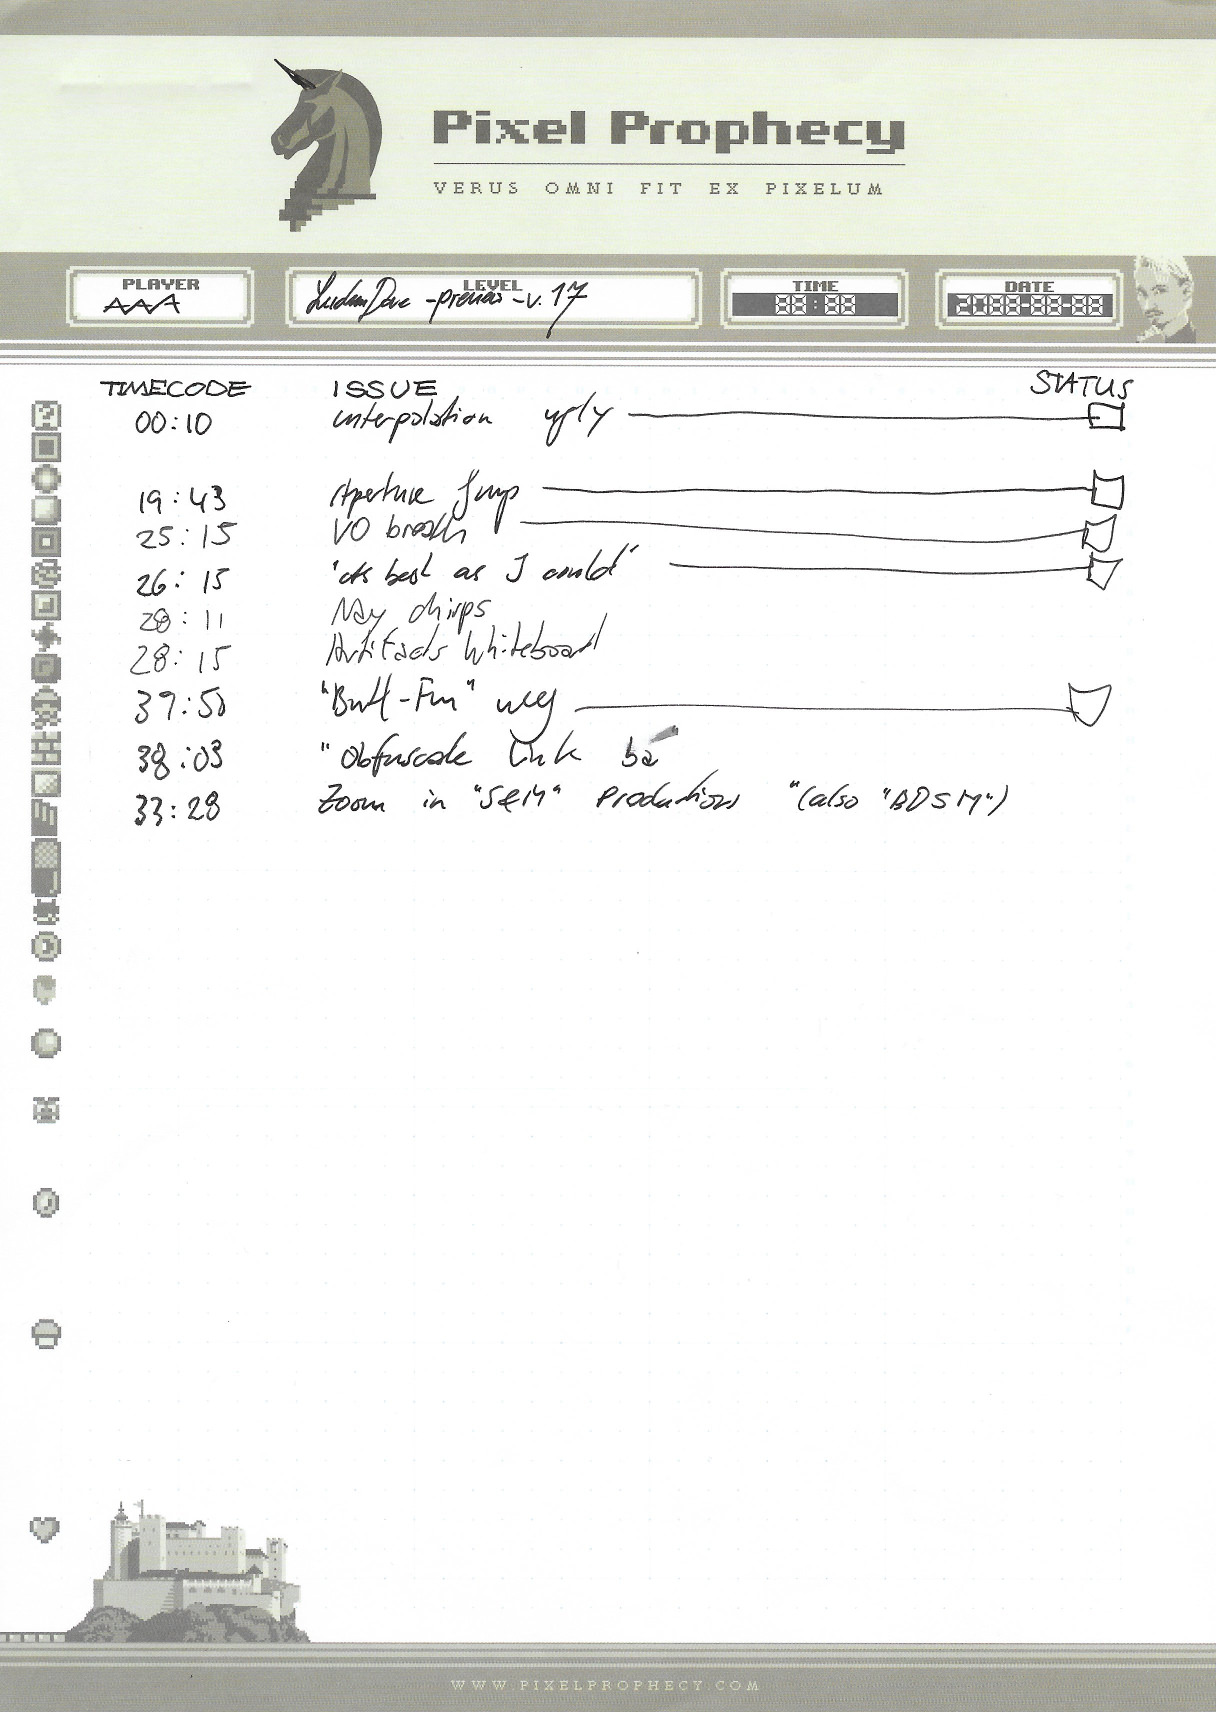 Pixel Prophecy
VERUS OMNI FIT EX PIXELUM
PLAYER
AAA
LEVEL
-v. 17
TIME
88:88
DATE
2088-88-88
TIMECODE ISSUE STATUS
00:10 interpolation ugly
19:43 Aperture Jump
25:15 VO breath
26:15 "as best as I could"
28:11 chirps
28:15 Artifacts Whiteboard
37:50 "Butt-Fm" weg
38:03 "Obfuscate Link
33:28 Zoom in "S&M" Productions "(also "BDSM")
WWW.PIXELPROPHECY.COM